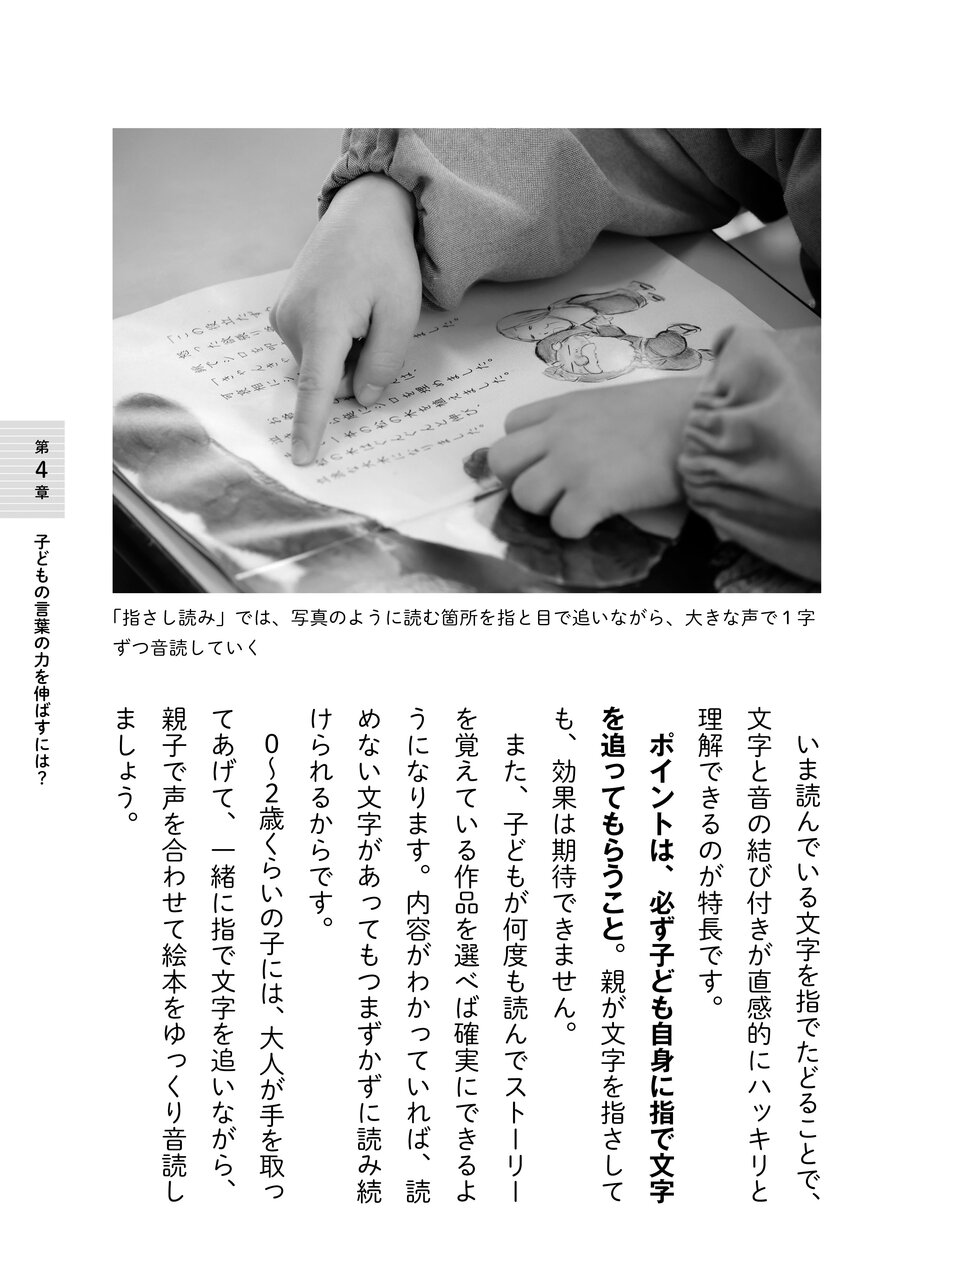 第4章
子どもの言葉の力を伸ばすには？
「指さし読み」では、写真のように読む箇所を指と目で追いながら、大きな声で1字
ずつ音読していく
いま読んでいる文字を指でたどることで、
文字と音の結び付きが直感的にハッキリと
理解できるのが特長です。
ポイントは、必ず子ども自身に指で文字
を追ってもらうこと。親が文字を指さして
も、効果は期待できません。
また、子どもが何度も読んでストーリー
を覚えている作品を選べば確実にできるよ
うになります。内容がわかっていれば、読
めない文字があってもつまずかずに読み続
けられるからです。
0〜2歳くらいの子には、大人が手を取っ
てあげて、一緒に指で文字を追いながら、
親子で声を合わせて絵本をゆっくり音読し
ましょう。